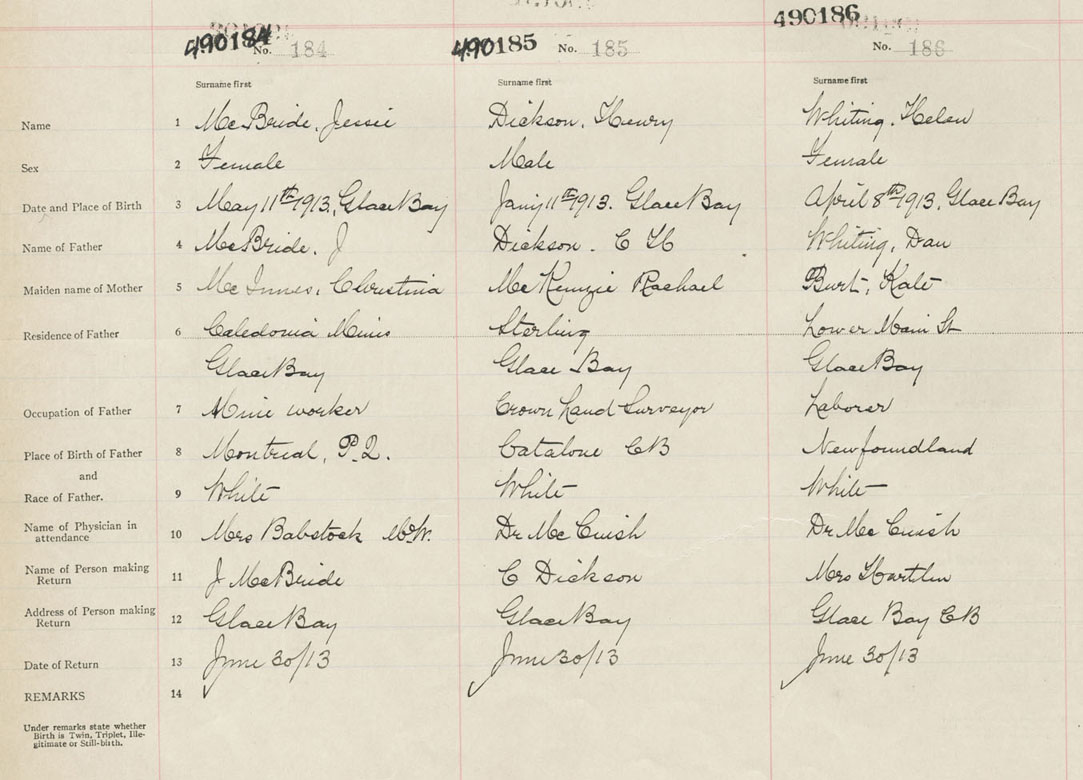 490184 No. 184 490185 No. 185 490186 No. 186
Surname first Surname first Surname first
Name 1 McBride, Jessie Dickson, Henry Whiting, Helen
Sex 2 Female Male Female
Date and Place of Birth 3 May 11th 1913, Glace Bay Jany 11th 1913. Glace Bay April 8th 1913, Glace Bay
Name of Father 4 McBride, J Dickson. C H Whiting, Dan
Maiden name of Mother 5 McInnes, Christina McKenzie Rachael Burt, Kate
Residence of Father 6 Caledonia Mines Sterling Lower Main St
Glace Bay Glace Bay Glace Bay
Occupation of Father 7 Mine worker Crown Land Surveyor Laborer
Place of Birth of Father 8 Montreal, P.Q. Catalone CB Newfoundland
and
Race of Father. 9 White White White
Name of Physician in
attendance 10 Mrs Babstock Dr McCuish Dr McCuish
Name of Person making
Return 11 J McBride C Dickson Mrs
Address of Person making
Return 12 Glace Bay Glace Bay Glace Bay CB
Date of Return 13 June 30/13 June 30/13 June 30/13
REMARKS 14
Under remarks state whether
Birth is Twin, Triplet, Ille-
gitimate or Still-birth.